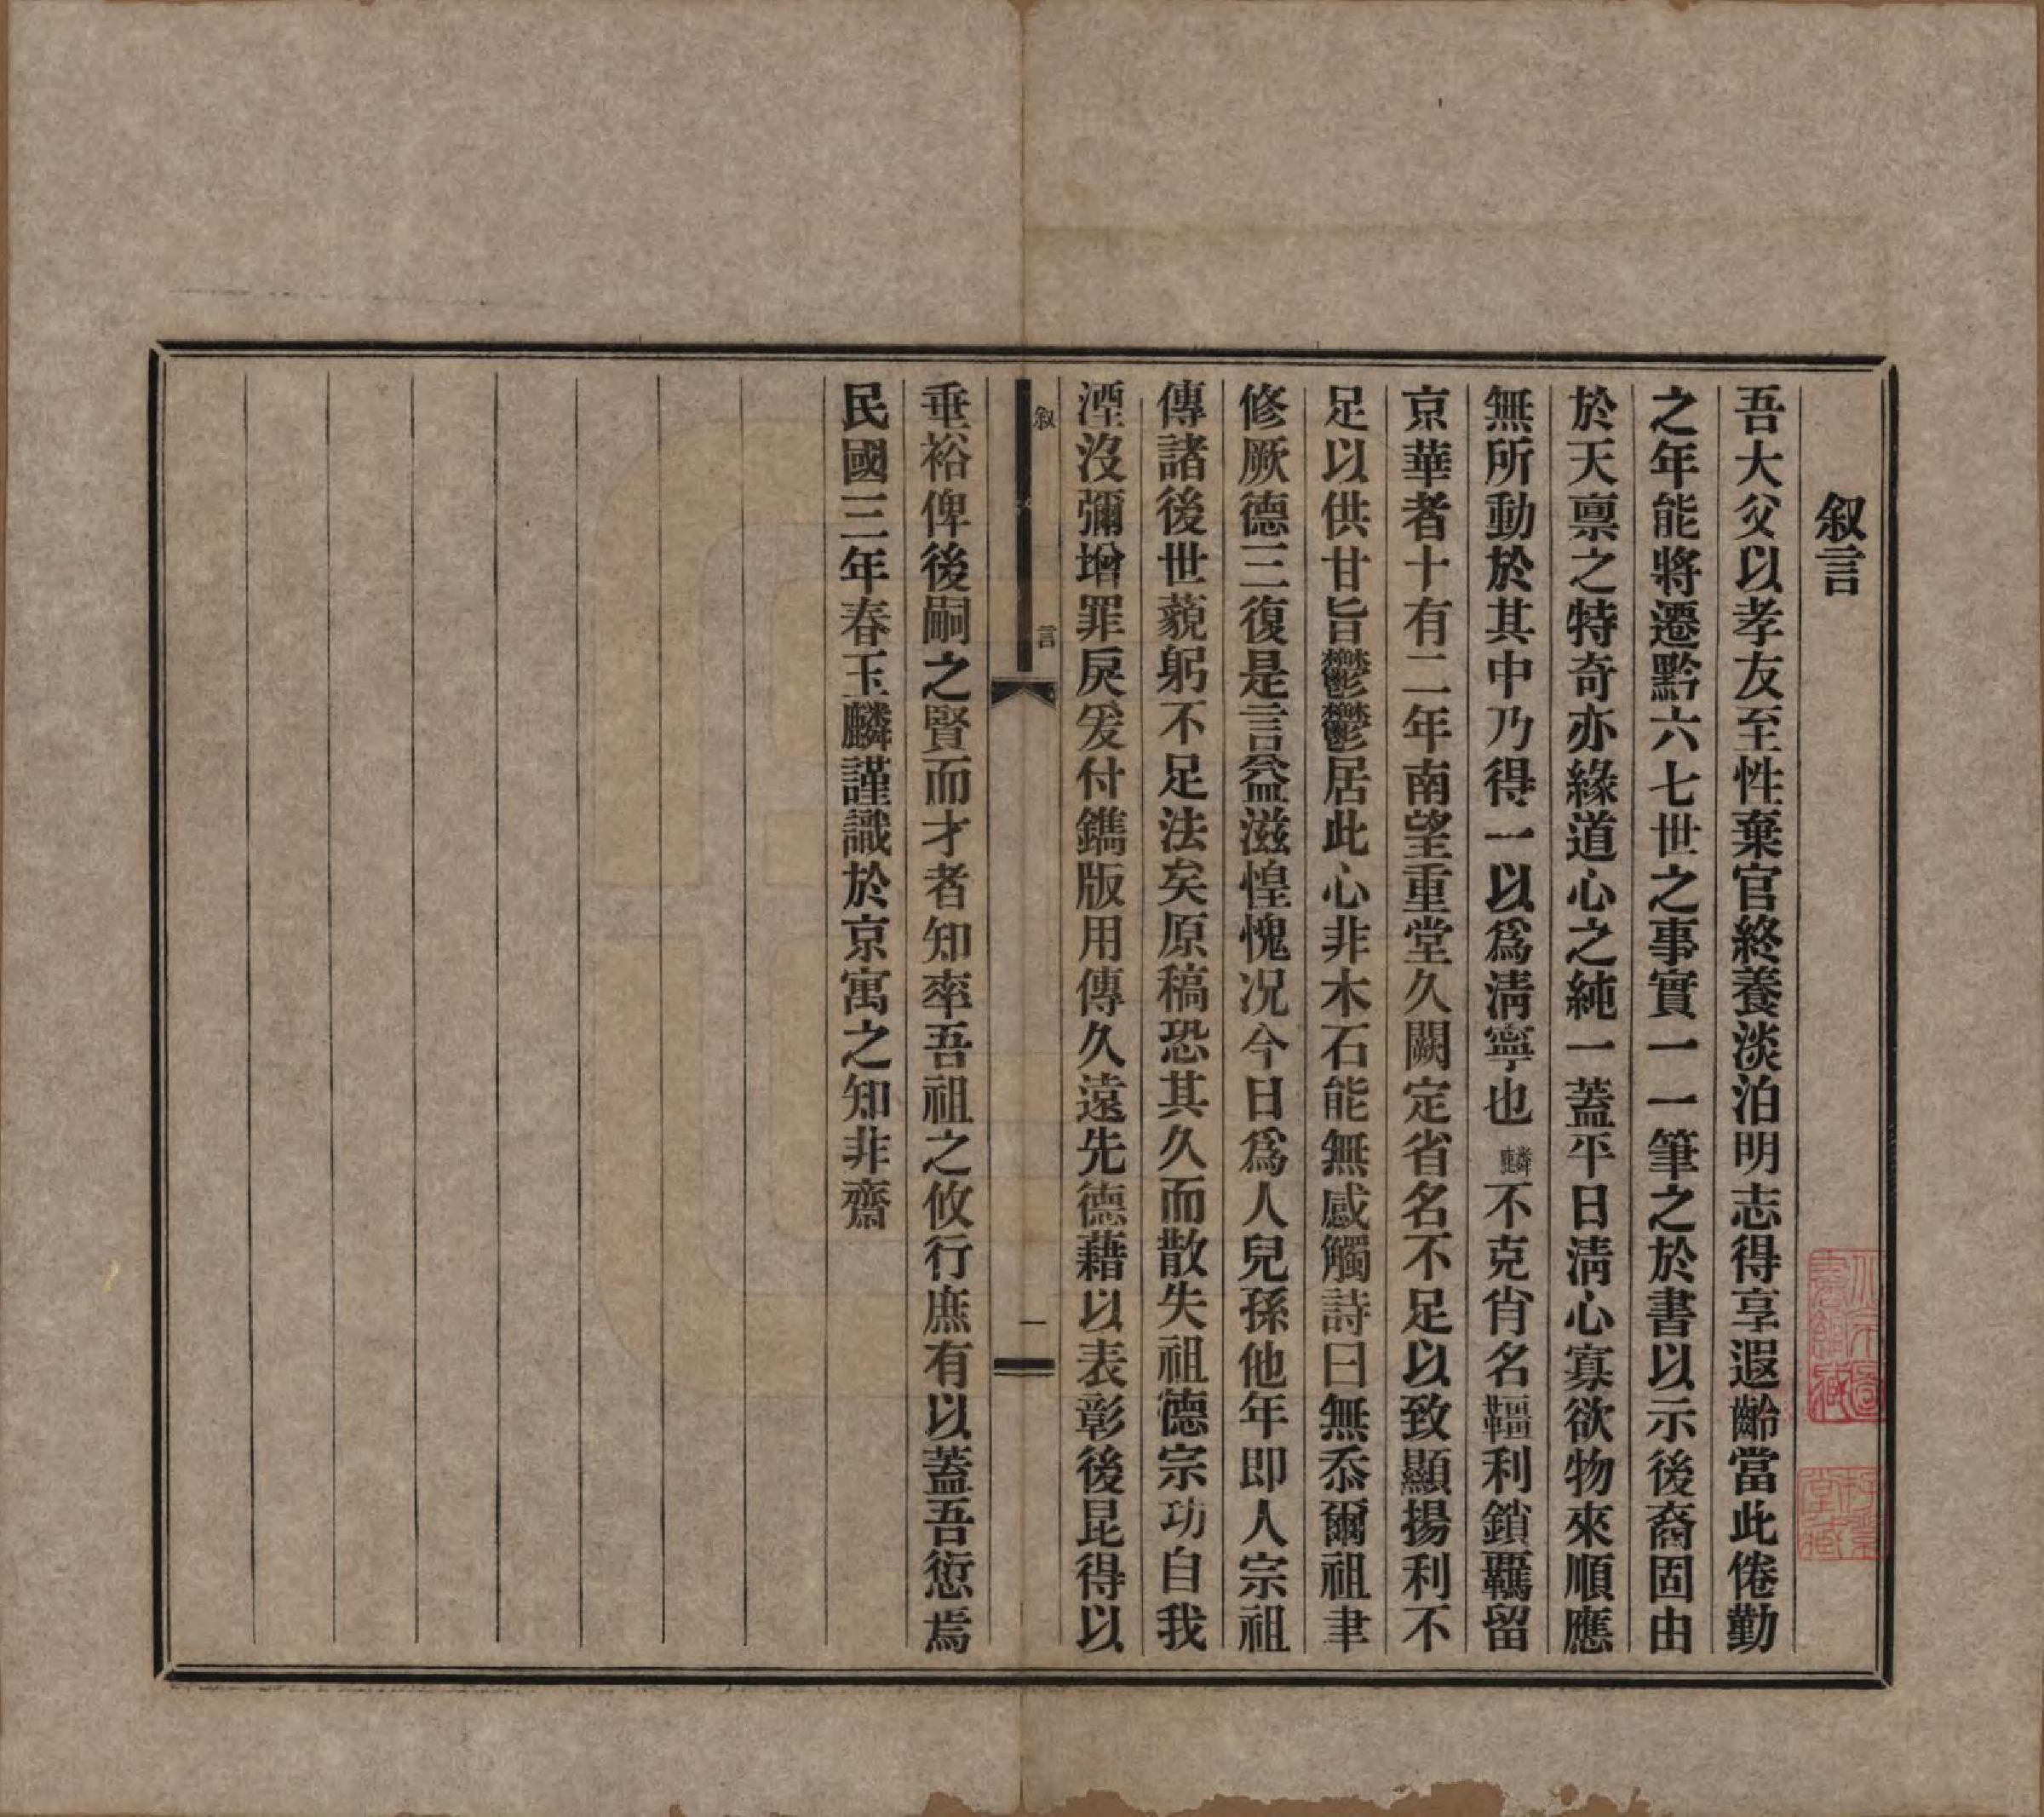 叙言
吾大父以孝友至性棄官終養淡泊明志得享遐齡當此倦勤
之年能將遷黔六七世之事實一一筆之於書以示後裔固由
於天禀之特奇亦緣道心之純一蓋平日淸心寡欲物來順應
無所動於其中乃得一以爲淸寧也麟不克肖名韁利鎖覊留
京華者十有二年南望重堂久闕定省名不足以致顯揚利不
足以供甘旨鬱鬱居此心非木石能無感觸詩曰無忝爾祖聿
修厥德三復是言益滋惶愧况今日爲人兒孫他年即人宗祖
傳諸後世藐躬不足法矣原稿恐其久而散失祖德宗功自我
湮沒彌增罪戾爰付鐫版用傳久遠先德藉以表彰後昆得以
叙言
一
垂裕俾後嗣之賢而才者知率吾祖之攸行庶有以蓋吾愆焉
民國三年春玉麟謹識於京寓之知非齋